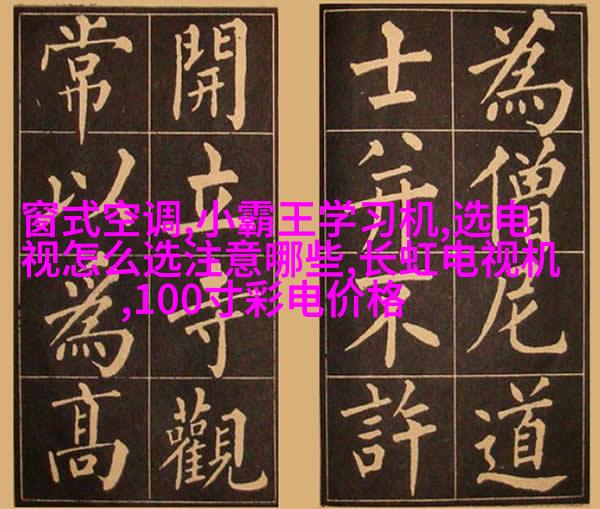 為僧尼道
士并不許
開立寺觀
常以為高
窗式空调,小霸王学习机,选电
视怎么选注意哪些,长虹电视机
,100寸彩电价格